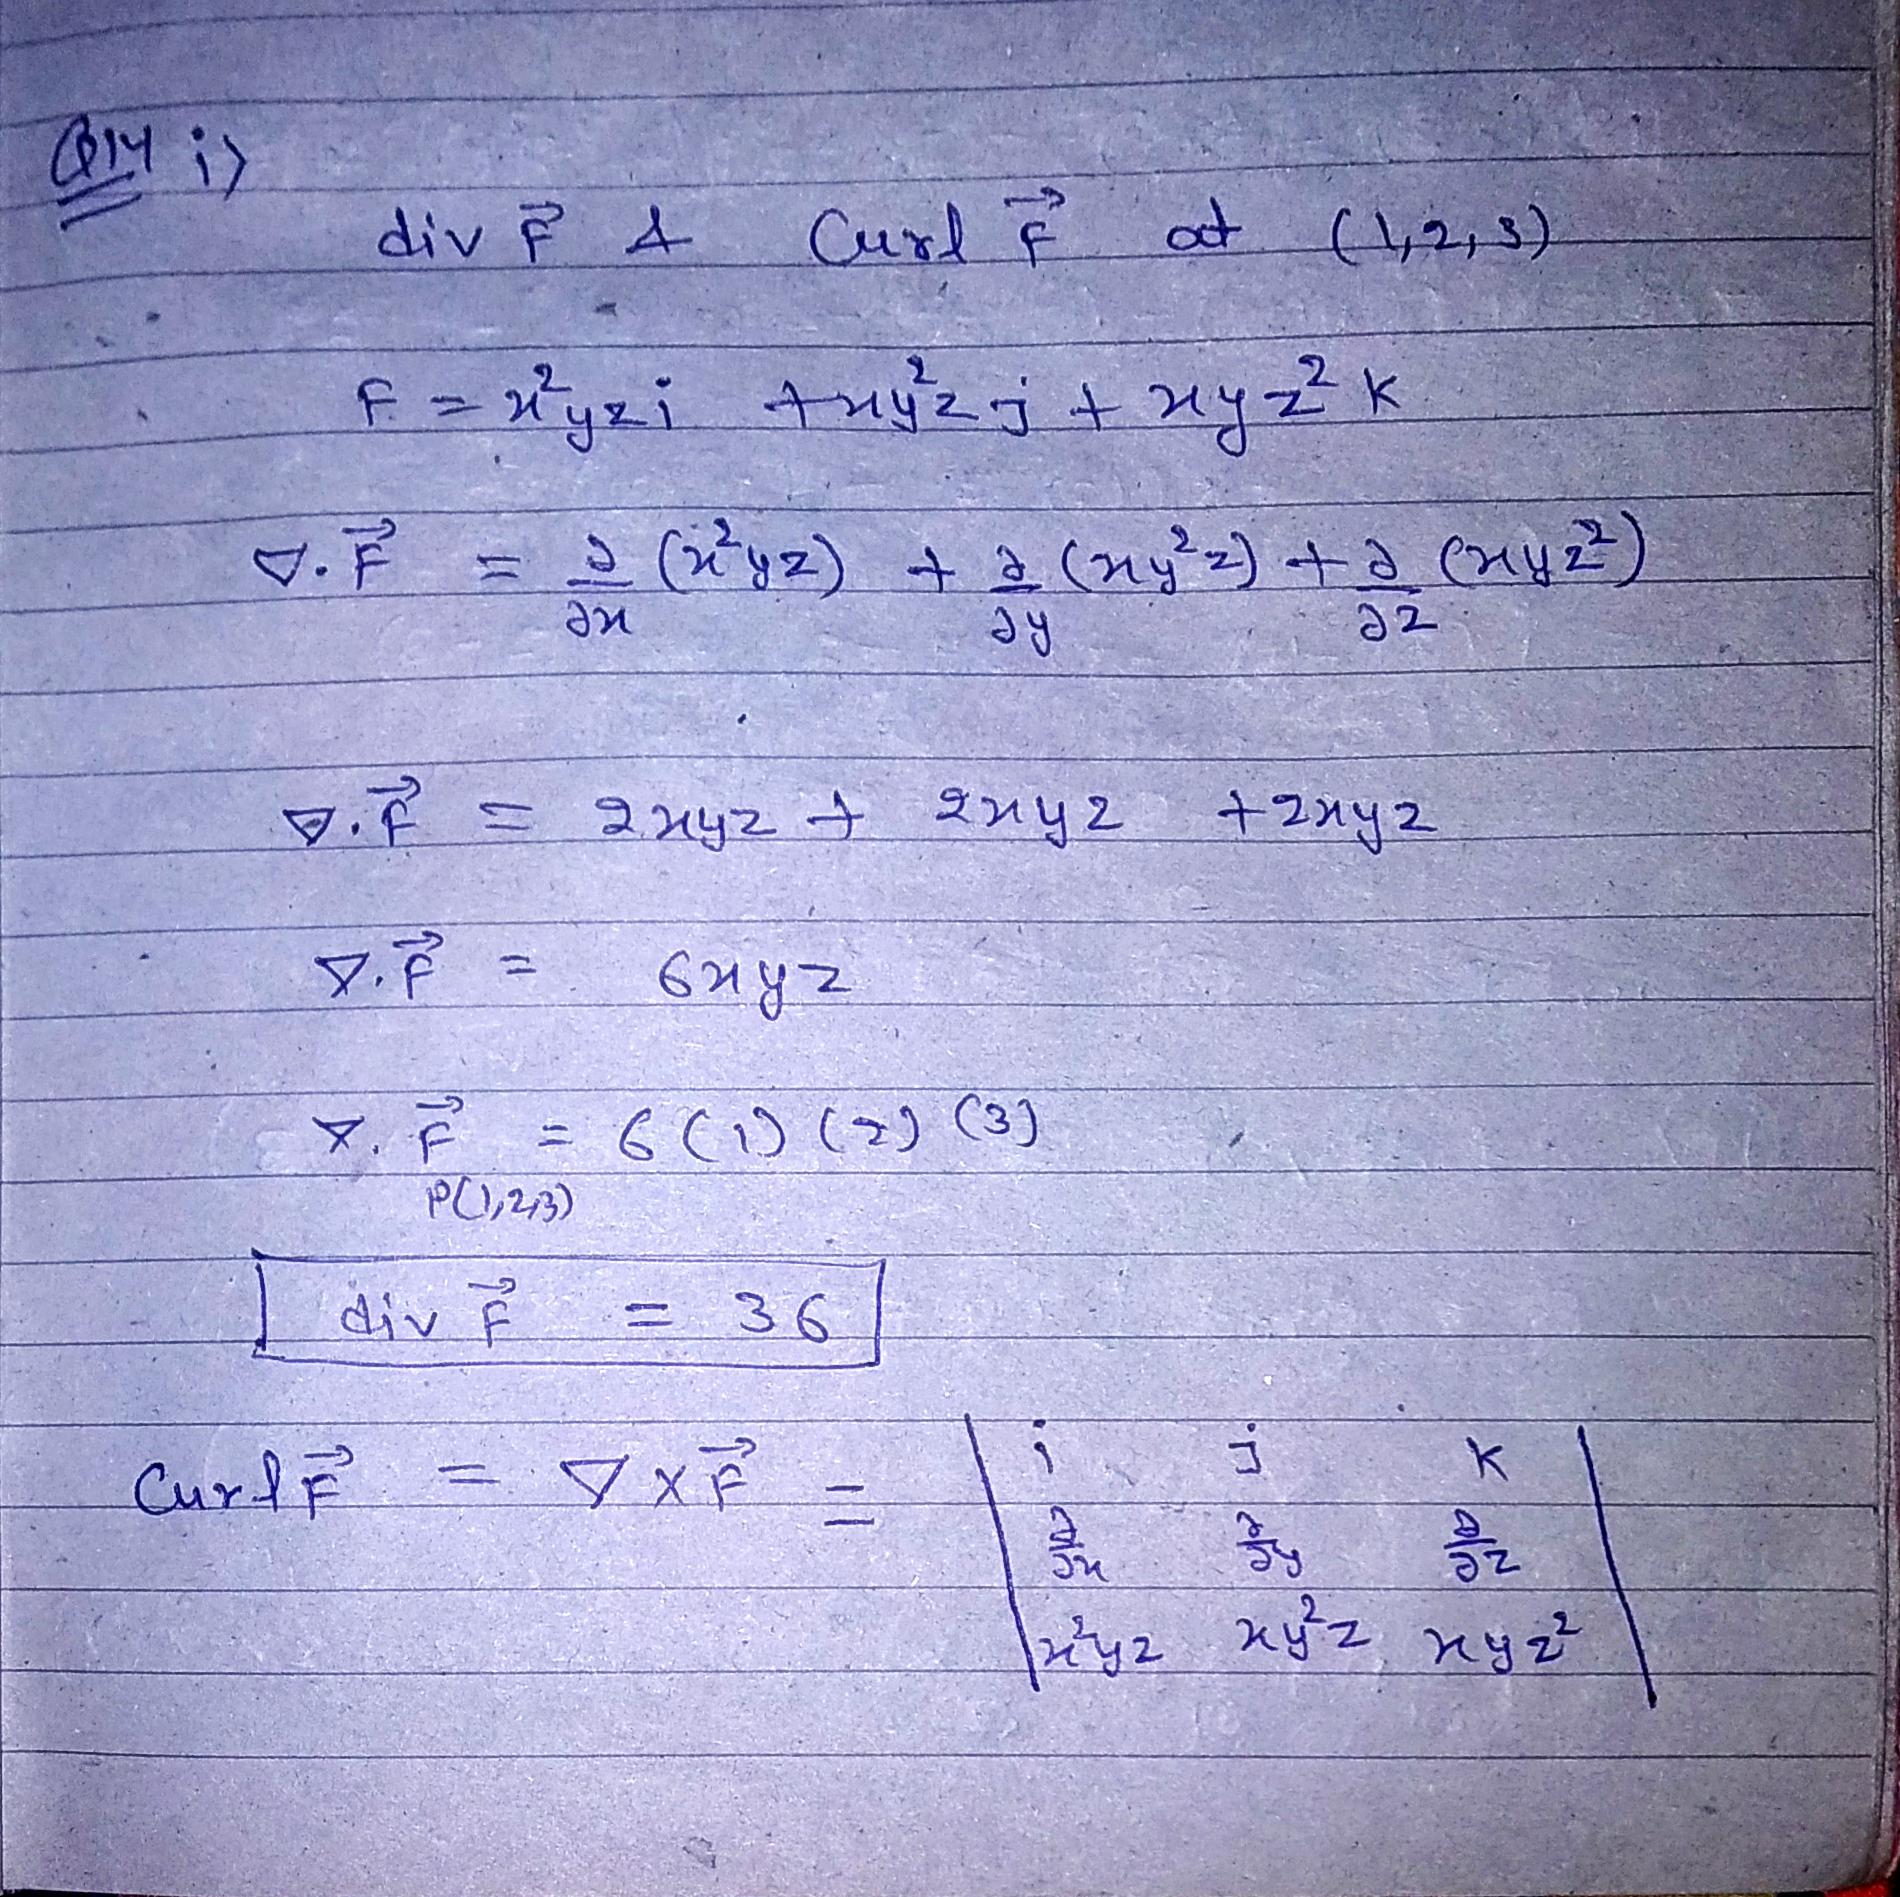 Q14 i)
div F⃗ & Curl F⃗ at (1,2,3)
F = x²yzi + xy²zj + xyz² k
∇.F⃗ = ∂/∂x (x²yz) + ∂/∂y (xy²z) + ∂/∂z (xyz²)
∇.F⃗ = 2xyz + 2xyz + 2xyz
∇.F⃗ = 6xyz
∇.F⃗ = 6(1)(2)(3)
P(1,2,3)
div F⃗ = 36
Curl F⃗ = ∇×F⃗ = | i j k |
∂/∂x ∂/∂y ∂/∂z
x²yz xy²z xyz²